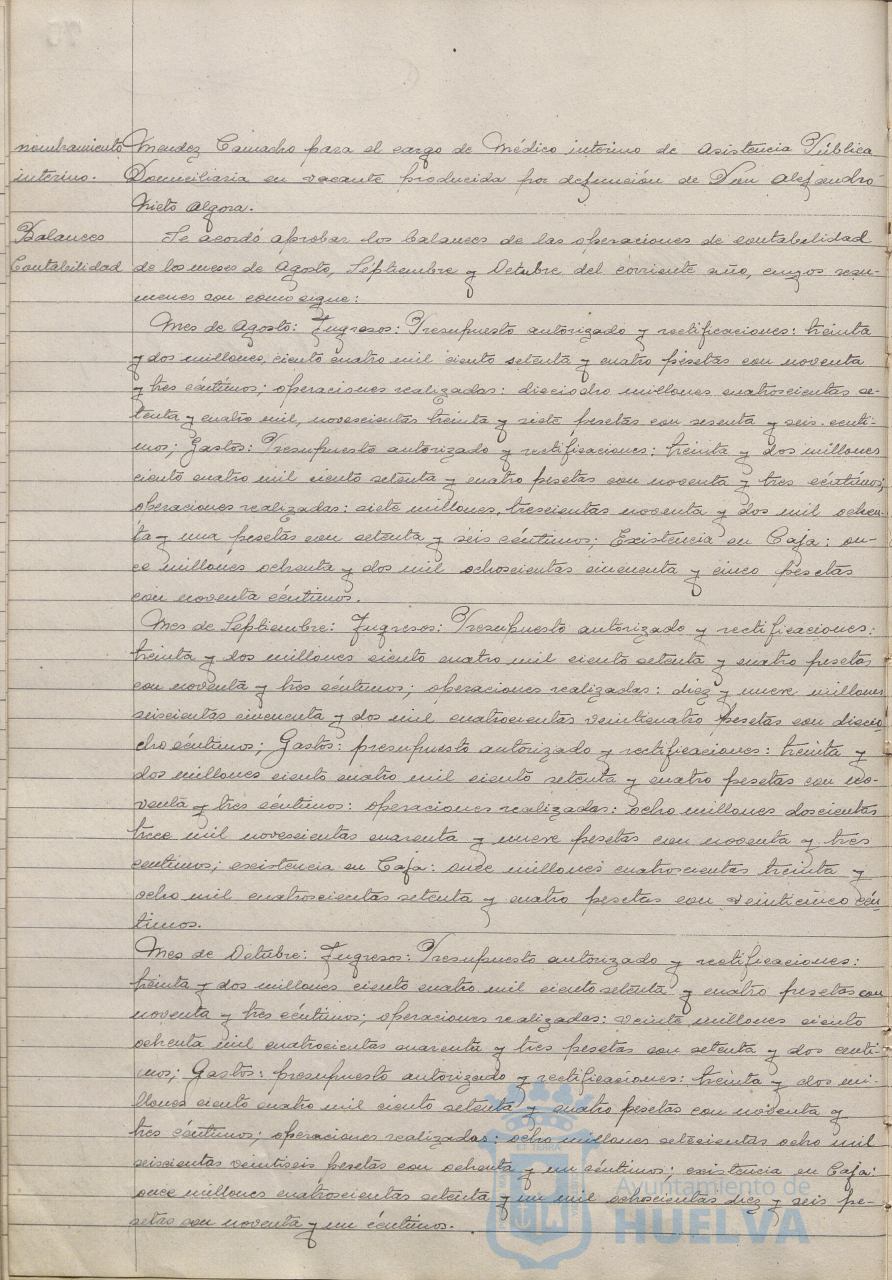 nombramiento
interino.
Mendez Camacho para el cargo de Médico interino de Asistencia Pública
Domiciliaria en vacante producida por defunción de Don Alejandro
Nieto Algora.
Balances
Contabilidad
Se acordó aprobar los balances de las operaciones de contabilidad
de los meses de Agosto, Séptiembre y Octubre del corriente año, cuyos resu-
menes son como sigue:
Mes de Agosto: Ingresos: Presupuesto autorizado y rectificaciones: treinta
y dos millones, ciento cuatro mil ciento setenta y cuatro pesetas con noventa
y tres céntimos; operaciones realizadas: dieciocho millones cuatroscientas se-
tenta y cuatro mil, novescientas treinta y siete pesetas con sesenta y seis centi-
mos; Gastos: Presupuesto autorizado y rectificaciones: treinta y dos millones
ciento cuatro mil ciento setenta y cuatro pesetas con noventa y tres céntimos;
operaciones realizadas: siete millones, trescientas noventa y dos mil ochen-
ta y una pesetas con setenta y seis céntimos; Existencia en Caja: on-
ce millones ochenta y dos mil ochoscientas cincuenta y cinco pesetas
con noventa céntimos.
Mes de Septiembre: Ingresos: Presupuesto autorizado y rectificaciones:
treinta y dos millones ciento cuatro mil ciento setenta y cuatro pesetas
con noventa y tres céntimos; operaciones realizadas: diez y nueve millones
seiscientas cincuenta y dos mil cuatrocientas veinticuatro pesetas con diecio
cho céntimos; Gastos: presupuesto autorizado y rectificaciones: treinta y
dos millones ciento cuatro mil ciento setenta y cuatro pesetas con no-
venta y tres céntimos: operaciones realizadas: ocho millones doscientas
trece mil novescientas cuarenta y nueve pesetas con noventa y tres
centimos; existencia en Caja: once millones cuatroscientas treinta y
ocho mil cuatroscientas setenta y cuatro pesetas con veinticinco cén
timos.
Mes de Octubre: Ingresos: Presupuesto autorizado y rectificaciones:
treinta y dos millones ciento cuatro mil ciento setenta y cuatro pesetas con
noventa y tres céntimos; operaciones realizadas: veinte millones ciento
ochenta mil cuatrocientas cuarenta y tres pesetas con setenta y dos centi-
mos; Gastos: presupuesto autorizado y rectificaciones: treinta y dos mi-
llones ciento cuatro mil ciento setenta y cuatro pesetas con noventa y
tres céntimos; operaciones realizadas: ocho millones setescientas ocho mil
seiscientas veintiseis pesetas con ochenta y un céntimos; existencia en Caja:
once millones cuatroscientas setenta y un mil ochoscientas diez y seis pe-
setas con noventa y un céntimos.
ET TERRA
Ayuntamiento de
HUELVA